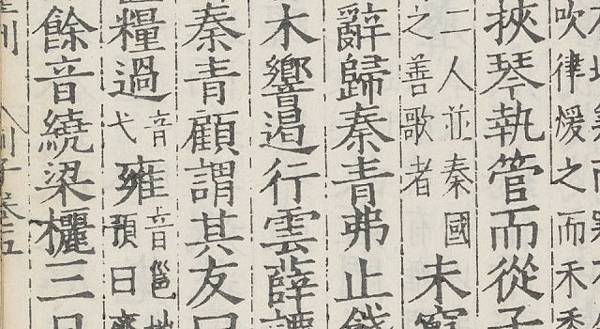 吹律煖之而禾黍
挾琴執管而從子
二人並秦國
之善歌者
未窮
辭歸秦青弗止餞
木響遏行雲薛譚
秦青顧謂其友曰
糧過
音
弋
雍
音邕地
預曰齊
餘音繞梁欐三日